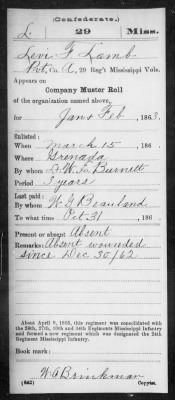 (Confederate.)
L. 29 Miss.
Levi F. Lamb
Pvt, Co. A, 29 Reg't Mississippi Vols.
Appears on
Company Muster Roll
of the organization named above,
for Jan & Feb, 1863.
Enlisted:
When March 15, 186
Where Grenada
By whom W. Burnett
Period 3 years
Last paid:
By whom W. G. Beauland
To what time Oct 31, 186
Present or absent Absent
Remarks: Absent wounded
since Dec 30/62
About April 9, 1865, this regiment was consolidated with
the 24th, 27th, 30th and 34th Regiments Mississippi Infantry
and formed a new regiment which was designated the 24th
Regiment Mississippi Infantry.
Book mark:
W. G. Brinkman
(642) Copyist.